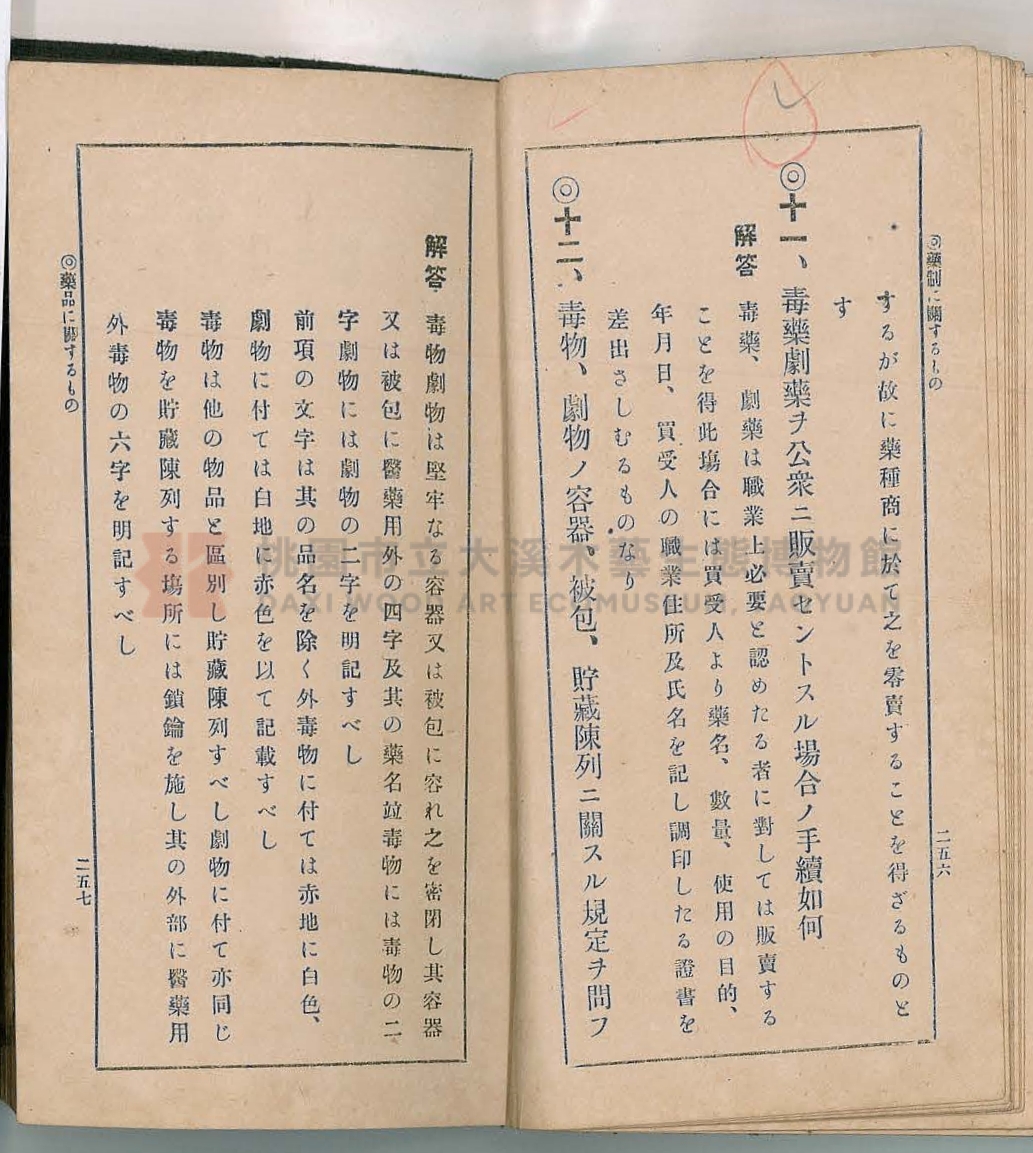 ◎藥制に關するもの
二五六
するが故に藥種商に於て之を零賣することを得ざるものと
す
◎十一、毒藥劇藥ヲ公衆ニ販賣セントスル場合ノ手續如何
解答 毒藥、劇藥は職業上必要と認めたる者に對しては販賣する
ことを得此塲合には買受人より藥名、數量、使用の目的、
年月日、買受人の職業住所及氏名を記し調印したる證書を
差出さしむるものなり
◎十二、毒物、劇物ノ容器、被包、貯藏陳列ニ關スル規定ヲ問フ
解答 毒物劇物は堅牢なる容器又は被包に容れ之を密閉し其容器
又は被包に醫藥用外の四字及其の藥名竝毒物には毒物の二
字劇物には劇物の二字を明記すべし
前項の文字は其の品名を除く外毒物に付ては赤地に白色、
劇物に付ては白地に赤色を以て記載すべし
毒物は他の物品と區別し貯藏陳列すべし劇物に付て亦同じ
毒物を貯藏陳列する塲所には鎖鑰を施し其の外部に醫藥用
外毒物の六字を明記すべし
◎藥品に關するもの
二五七
桃園市立大溪木藝生態博物館
DAXI WOOD ART ECOMUSEUM, TAOYUAN